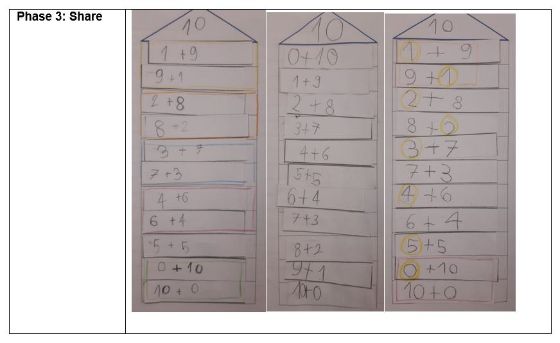 Phase 3: Share
10
1 + 9
9 + 1
2 + 8
8 + 2
3 + 7
7 + 3
4 + 6
6 + 4
5 + 5
0 + 10
10 + 0
10
0 + 10
1 + 9
2 + 8
3 + 7
4 + 6
5 + 5
6 + 4
7 + 3
8 + 2
9 + 1
10 + 0
10
1 + 9
9 + 1
2 + 8
8 + 2
3 + 7
7 + 3
4 + 6
6 + 4
5 + 5
0 + 10
10 + 0